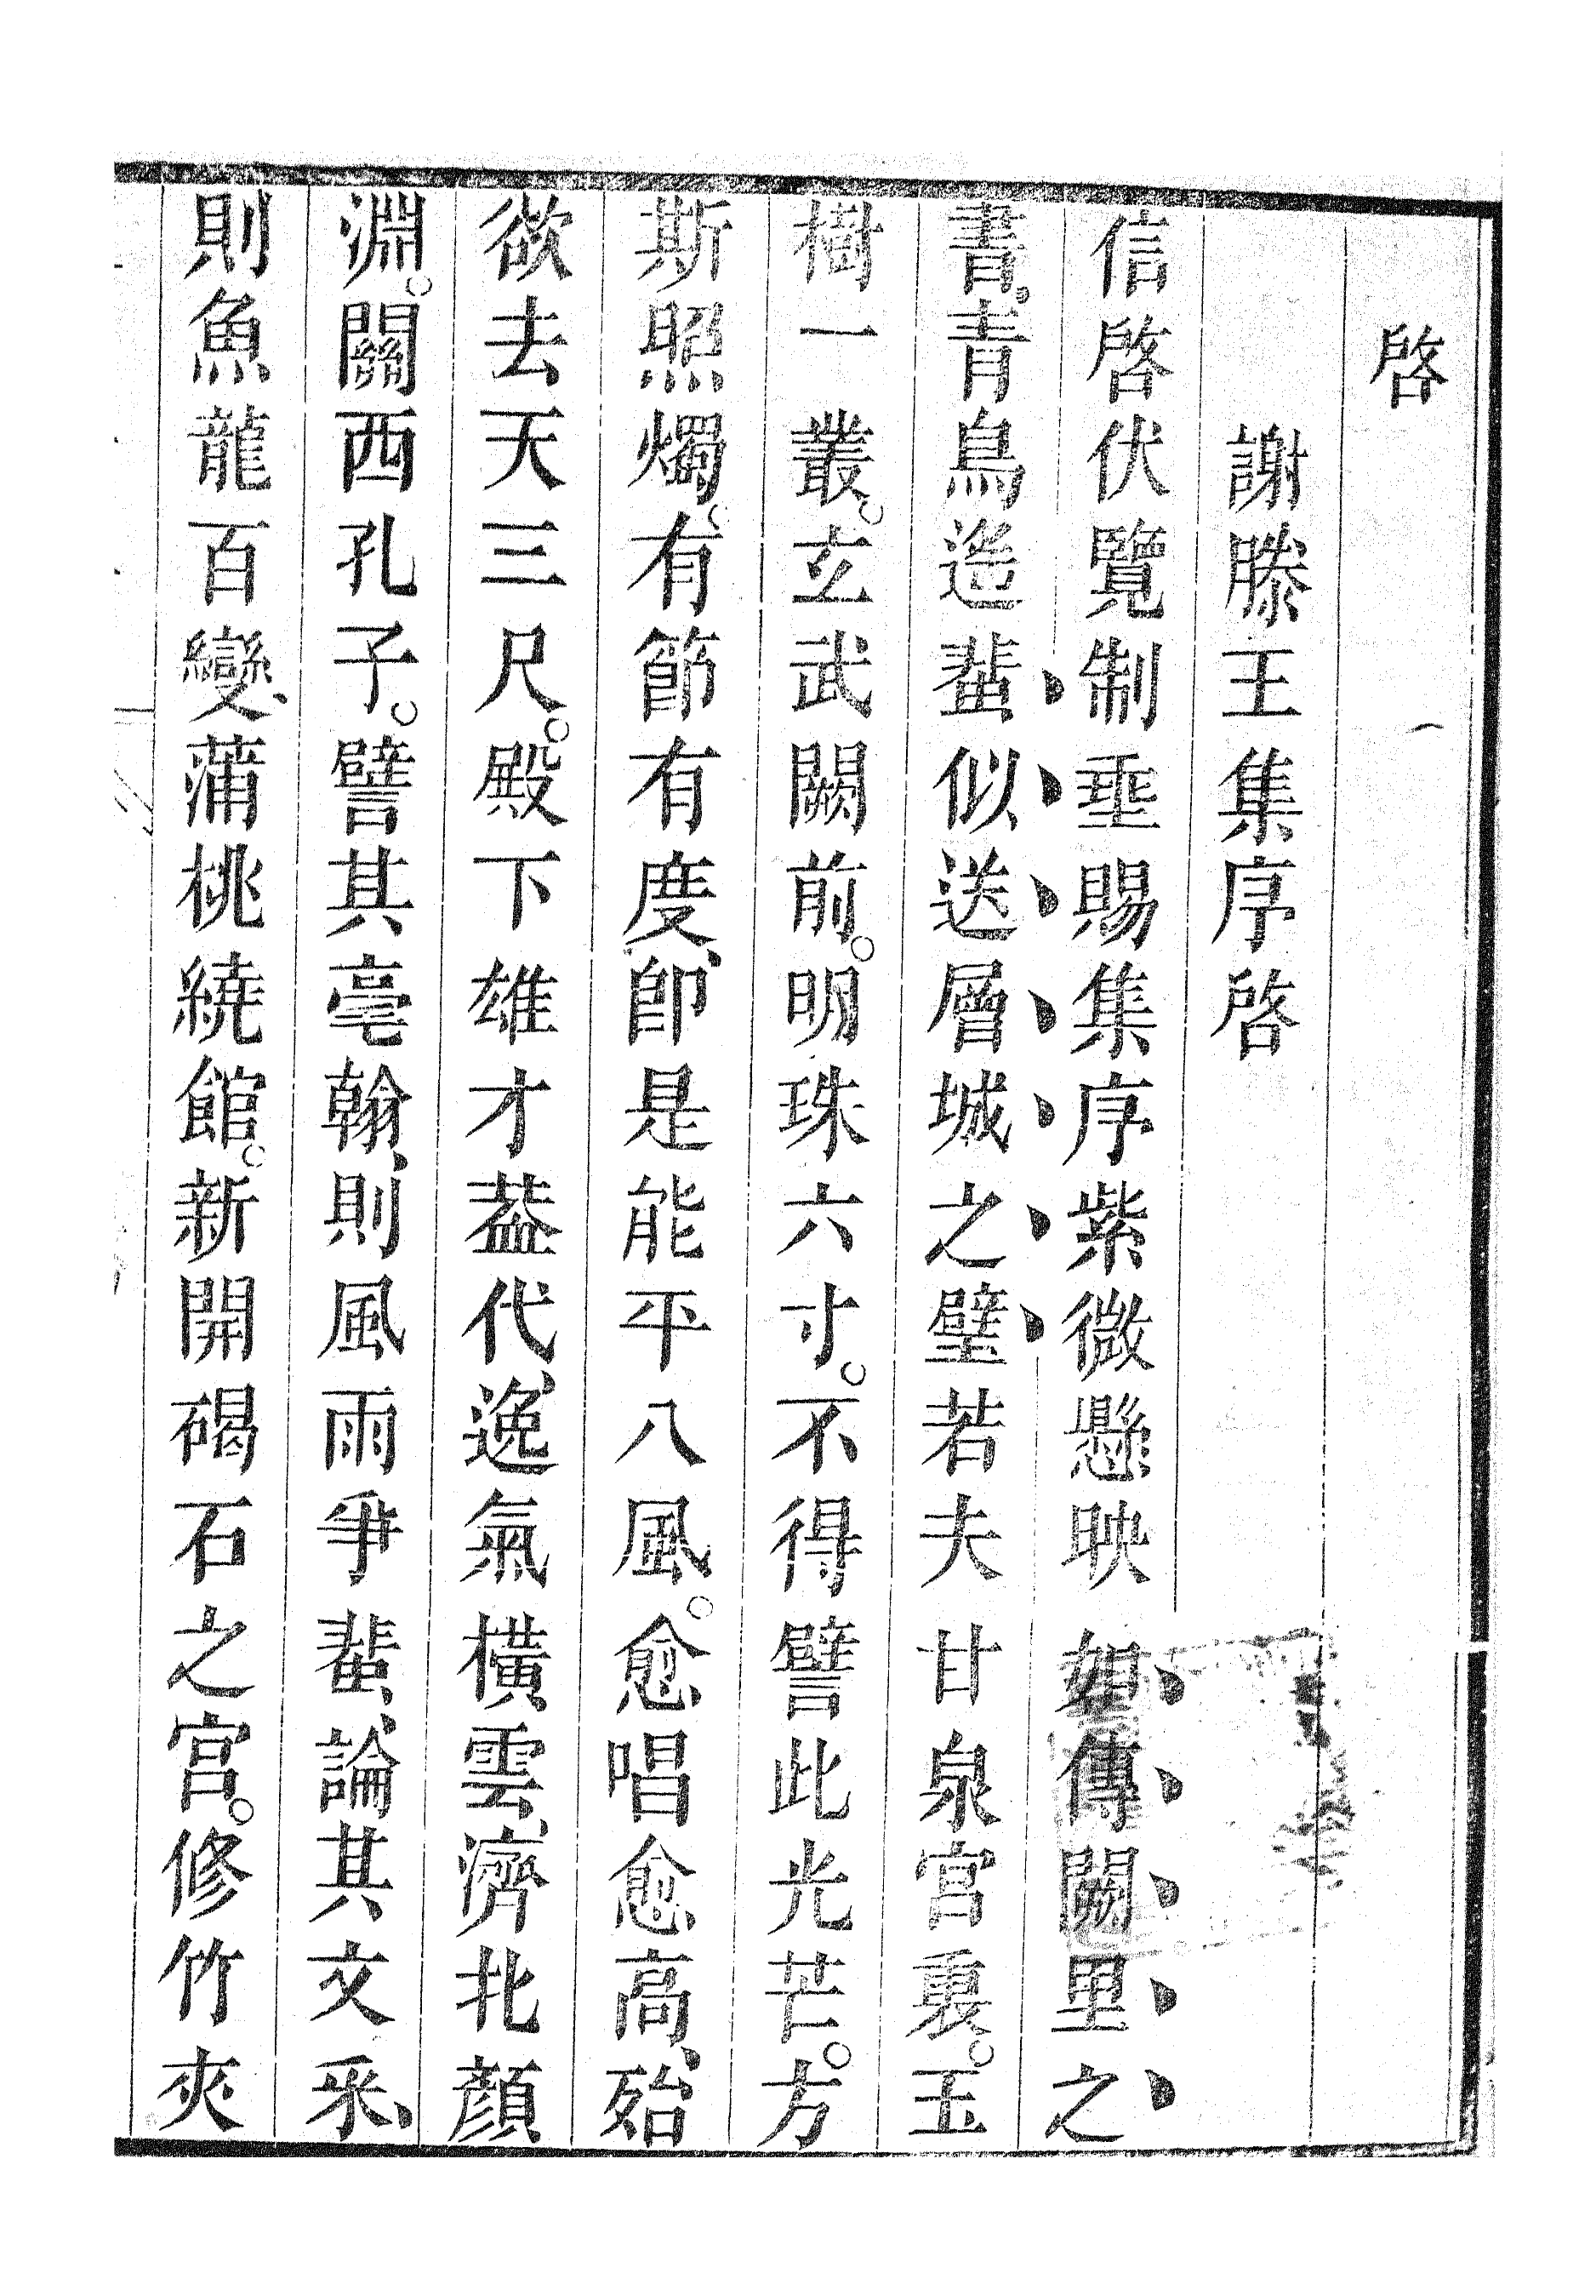 啓
謝滕王集序啓
信啓伏覽制垂賜集序紫微懸映如傳闕里之
書青鳥遥蜚似送層城之璧若夫甘泉宮裏玉
樹一叢玄武闕前明珠六寸不得譬此光芒方
斯照燭有節有度卽是能平八風愈唱愈高殆
欲去天三尺殿下雄才蓋代逸氣橫雲濟北顔
淵關西孔子譬其毫翰則風雨爭蜚論其文采
則魚龍百變蒲桃繞館新開碣石之宮修竹夾